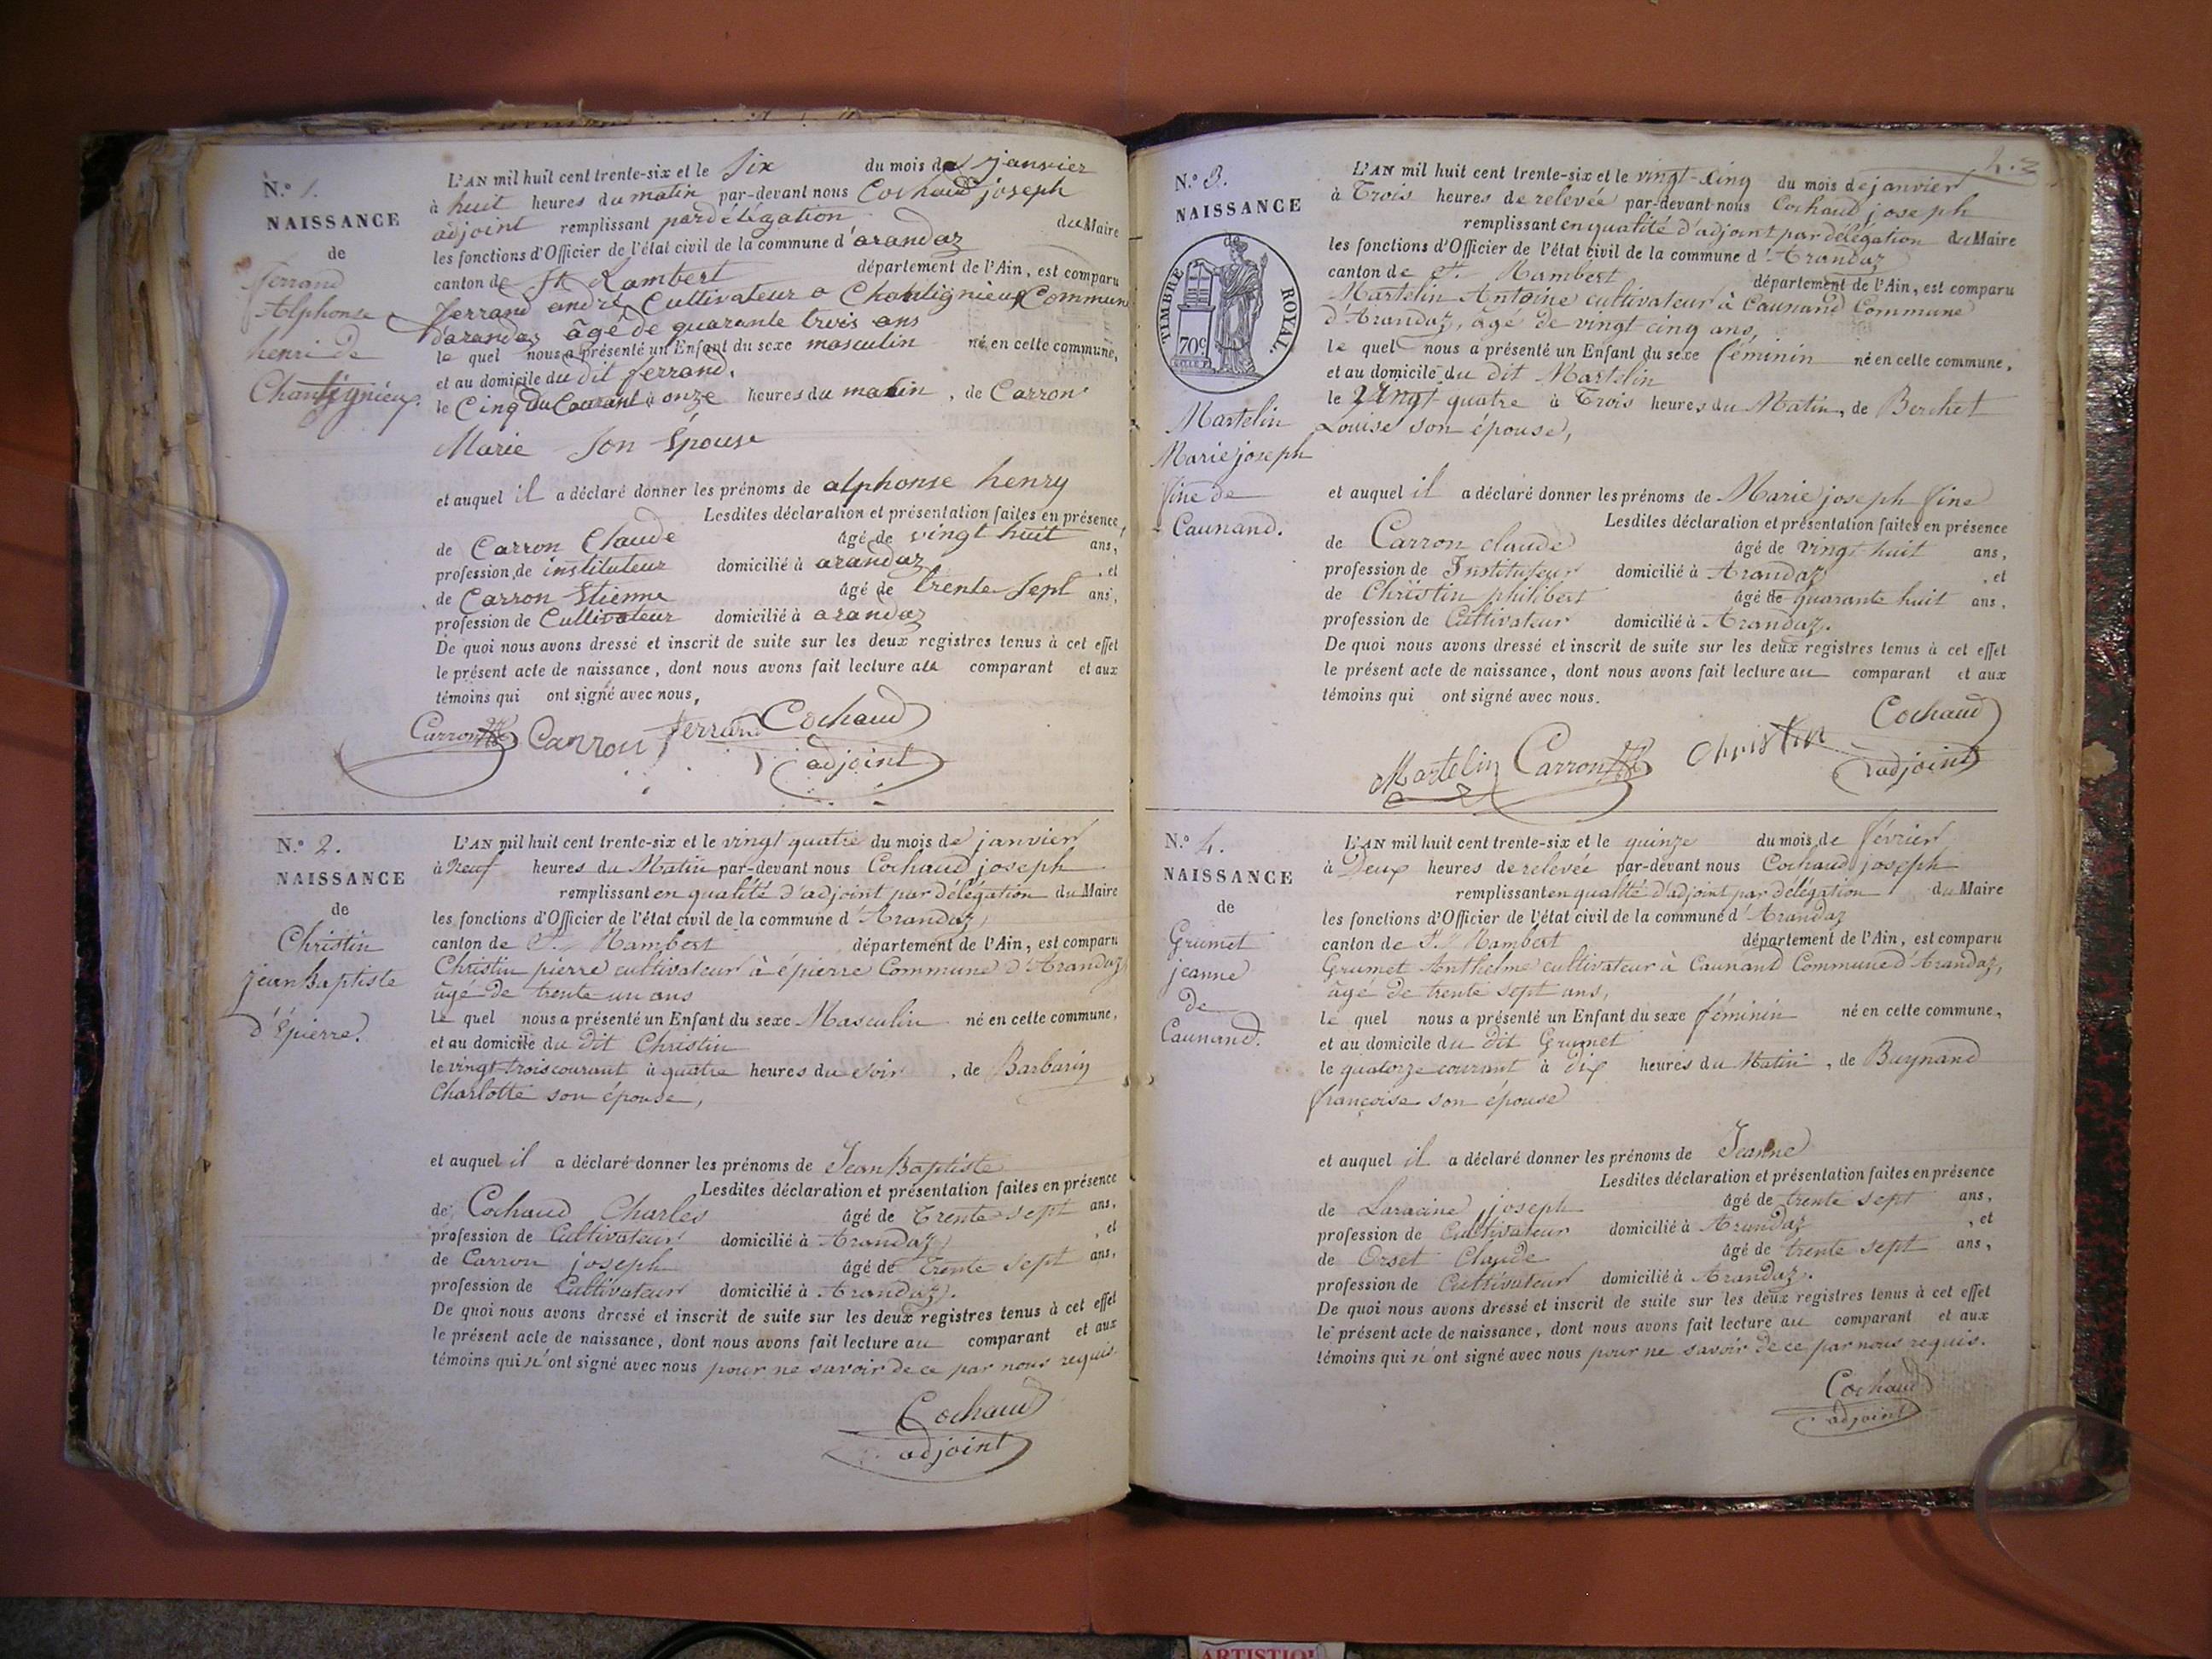 N.o 1.
NAISSANCE
de
ferrand
Alphonse
henri de
Chantignieux.
L'AN mil huit cent trente-six et le Six du mois de janvier
à huit heures du matin par-devant nous Cochaud joseph
adjoint remplissant par délégation du Maire
les fonctions d'Officier de l'état civil de la commune d'arandaz
canton de St Rambert département de l'Ain, est comparu
ferrand andré Cultivateur a Chantignieux Commune
d'arandaz âgé de quarante trois ans
le quel nous a présenté un Enfant du sexe masculin né en cette commune,
et au domicile du dit ferrand.
le Cinq du Courant à onze heures du matin, de Carron
Marie Son Épouse
et auquel il a déclaré donner les prénoms de alphonse henry
Lesdites déclaration et présentation faites en présence
de Carron Claude âgé de vingt huit ans,
profession de instituteur domicilié à arandaz, et
de Carron Etienne âgé de trente Sept ans,
profession de Cultivateur domicilié à arandaz
De quoi nous avons dressé et inscrit de suite sur les deux registres tenus à cet effet
le présent acte de naissance, dont nous avons fait lecture au comparant et aux
témoins qui ont signé avec nous.
Carron Carron ferrand Cochaud
adjoint
N.o 2.
NAISSANCE
de
Christin
jean Baptiste
d'Épierre.
L'AN mil huit cent trente-six et le vingt quatre du mois de janvier
à neuf heures du Matin par-devant nous Cochaud joseph
remplissant en qualité d'adjoint par délégation du Maire
les fonctions d'Officier de l'état civil de la commune d'Arandaz
canton de St. Rambert département de l'Ain, est comparu
Christin pierre cultivateur à épierre Commune d'Arandaz
âgé de trente un ans
le quel nous a présenté un Enfant du sexe Masculin né en cette commune,
et au domicile du dit Christin
le vingt-trois courant à quatre heures du soir, de Barbarin
Charlotte son épouse,
et auquel il a déclaré donner les prénoms de Jean Baptiste
Lesdites déclaration et présentation faites en présence
de Cochaud Charles âgé de Trente sept ans,
profession de Cultivateur domicilié à Arandaz, et
de Carron joseph âgé de Trente sept ans,
profession de Cultivateur domicilié à Arandaz.
De quoi nous avons dressé et inscrit de suite sur les deux registres tenus à cet effet
le présent acte de naissance, dont nous avons fait lecture au comparant et aux
témoins qui n'ont signé avec nous pour ne savoir de ce par nous requis.
Cochaud
adjoint
N.o 3.
NAISSANCE
TIMBRE ROYAL.
70c
Martelin
Marie joseph
fine de
Caunand.
L'AN mil huit cent trente-six et le vingt-cinq du mois de janvier
à Trois heures de relevée par-devant nous Cochaud joseph
remplissant en qualité d'adjoint par délégation du Maire
les fonctions d'Officier de l'état civil de la commune d'Arandaz
canton de St. Rambert département de l'Ain, est comparu
Martelin Antoine cultivateur à Caunand Commune
d'Arandaz, âgé de vingt cinq ans,
le quel nous a présenté un Enfant du sexe féminin né en cette commune,
et au domicile du dit Martelin
le Vingt quatre à Trois heures du Matin, de Berchet
Louise son épouse,
et auquel il a déclaré donner les prénoms de Marie joseph fine
Lesdites déclaration et présentation faites en présence
de Carron claude âgé de vingt huit ans,
profession de Instituteur domicilié à Arandaz, et
de Christin philibert âgé de quarante huit ans,
profession de Cultivateur domicilié à Arandaz.
De quoi nous avons dressé et inscrit de suite sur les deux registres tenus à cet effet
le présent acte de naissance, dont nous avons fait lecture au comparant et aux
témoins qui ont signé avec nous.
Martelin Carron Christin Cochaud
adjoint
N.o 4.
NAISSANCE
de
Grumet
jeanne
de
Caunand.
L'AN mil huit cent trente-six et le quinze du mois de février
à Deux heures de relevée par-devant nous Cochaud joseph
remplissant en qualité d'adjoint par délégation du Maire
les fonctions d'Officier de l'état civil de la commune d'Arandaz
canton de St. Rambert département de l'Ain, est comparu
Grumet Anthelme cultivateur à Caunand Commune d'Arandaz,
âgé de trente sept ans,
le quel nous a présenté un Enfant du sexe féminin né en cette commune,
et au domicile du dit Grumet
le quatorze courant à dix heures du Matin, de Buynand
françoise son épouse
et auquel il a déclaré donner les prénoms de Jeanne
Lesdites déclaration et présentation faites en présence
de Laracine joseph âgé de trente sept ans,
profession de Cultivateur domicilié à Arandaz, et
de Orset Claude âgé de trente sept ans,
profession de Cultivateur domicilié à Arandaz.
De quoi nous avons dressé et inscrit de suite sur les deux registres tenus à cet effet
le présent acte de naissance, dont nous avons fait lecture au comparant et aux
témoins qui n'ont signé avec nous pour ne savoir de ce par nous requis.
Cochaud
adjoint